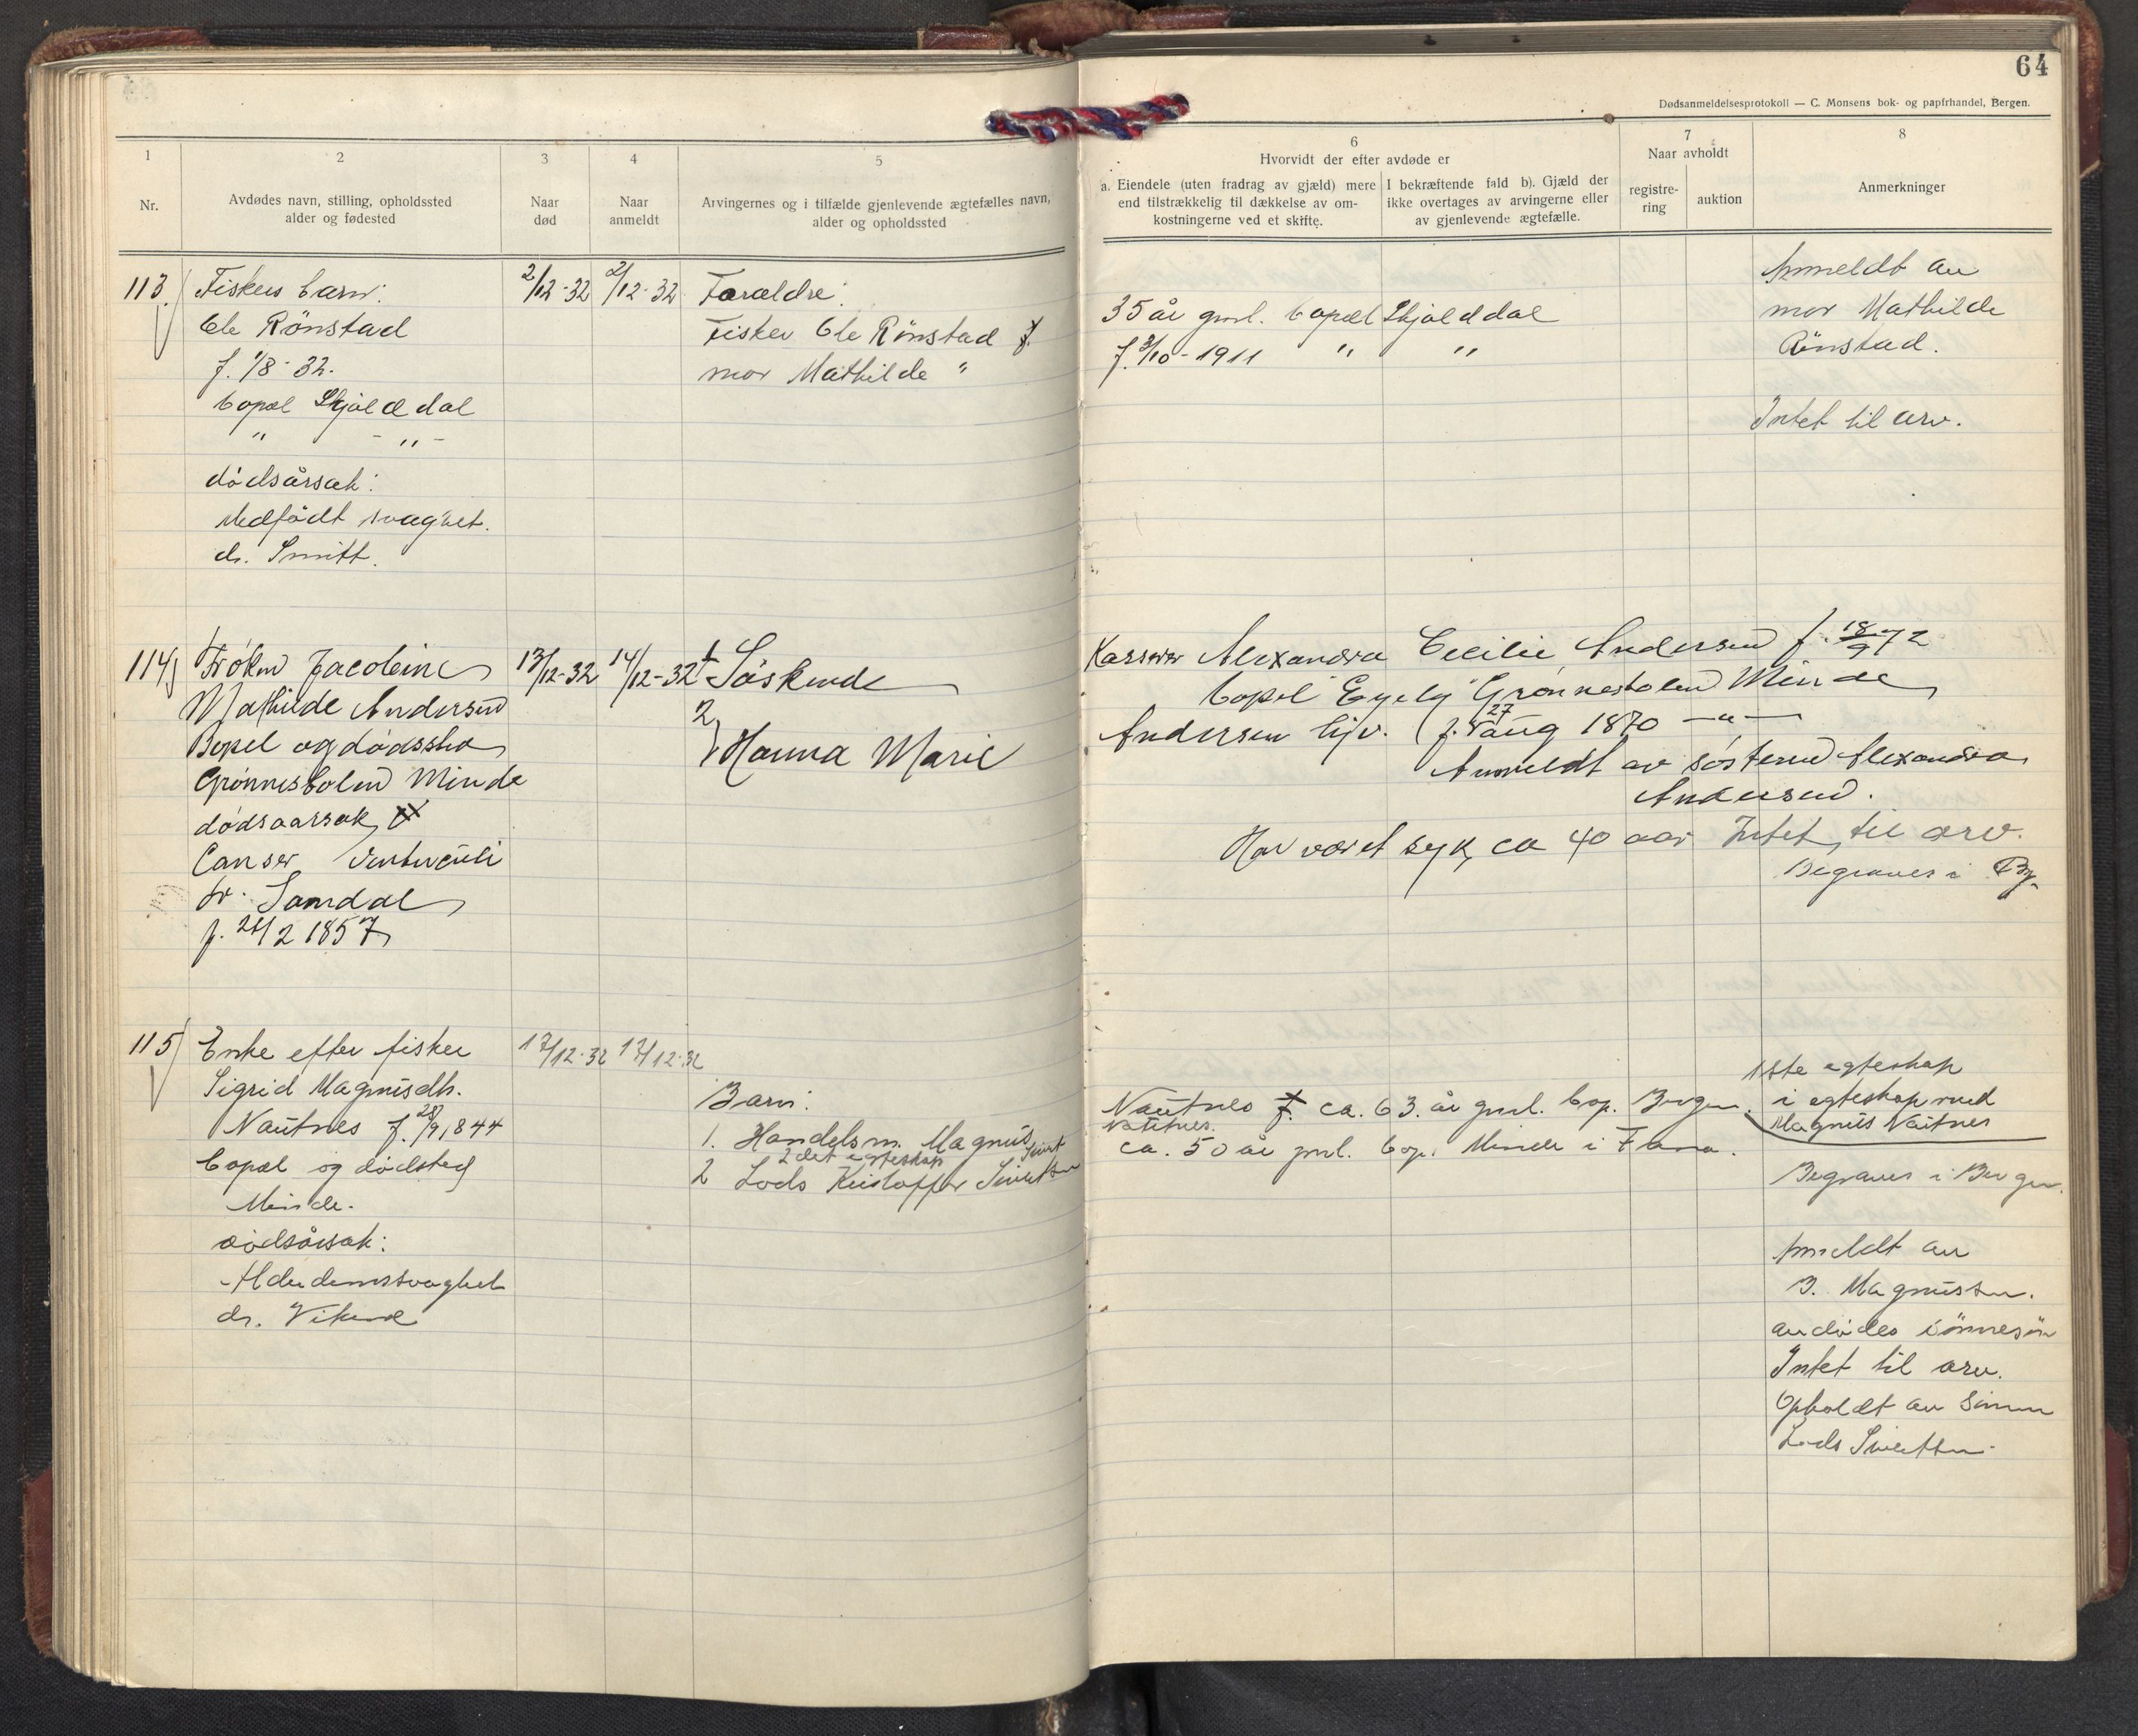 64
Dødsanmeldelsesprotokoll — C. Monsens bok- og papirhandel, Bergen.
1
Nr.
2
Avdødes navn, stilling, opholdssted
alder og fødested
3
Naar
død
4
Naar
anmeldt
5
Arvingernes og i tilfælde gjenlevende ægtefælles navn,
alder og opholdssted
6
Hvorvidt der efter avdøde er
a. Eiendele (uten fradrag av gjæld) mere
end tilstrækkelig til dækkelse av om-
kostningerne ved et skifte.
I bekræftende fald b). Gjæld der
ikke overtages av arvingerne eller
av gjenlevende ægtefælle.
7
Naar avholdt
registre-
ring
auktion
8
Anmerkninger
113.
Fiskers barn:
Ole Rönstad
f. 1/8-32.
bopæl Skjolddal
" - " -
dödsårsak:
Medfödt svaghet.
dr. Smitt.
2/12-32
2/12-32
Forældre:
Fisker Ole Rönstad f.
mor Mathilde "
35 år gml. bopæl Skjolddal
f. 3/10-1911 " "
Anmeldt av
mor Mathilde
Rönstad.
Intet til arv.
114
Frøken Jacobine
Mathilde Andersen
Bopel og dødssted
Grønnestølen Minde
dødsaarsak
Canser Ventriculi
dr. Samdal
f. 21/2 1857
13/12-32
14/12-32
1 Söskende
2
Hanna Marie
Kasserer Alexandra Cecilie Andersen f. 18/9 72
bopel "Eyely" Grønnestølen Minde
Andersen lijv. f. 27 aug 1870 —"—
Anmeldt av søsteren Alexandra
Andersen.
Har været syk ca 40 aar Intet til arv.
Begraves i By.
115
Enke efter fisker
Sigrid Magnusdtr.
Nautnes f. 28/9 1844
bopæl og dödsted
Minde.
dödsårsak:
Alderdomssvaghet
dr. Vikend
17/12-32
17/12-32
Barn:
1. Handelsm. Magnus Sivert
2det egteskap
2 Lods Kristoffer Sivertsen
Nautnes f. ca. 63. år gml. bop. Bergen.
Nautnes.
ca. 50 år gml. bop. Minde i Fana.
1ste egteskap
i egteskap med
Magnus Nautnes
Begraves i Bergen.
Anmeldt av
B. Magnussen.
avdödes sönnesön
Intet til arv.
Opholdt av sönnen
Lods Sivertsen.